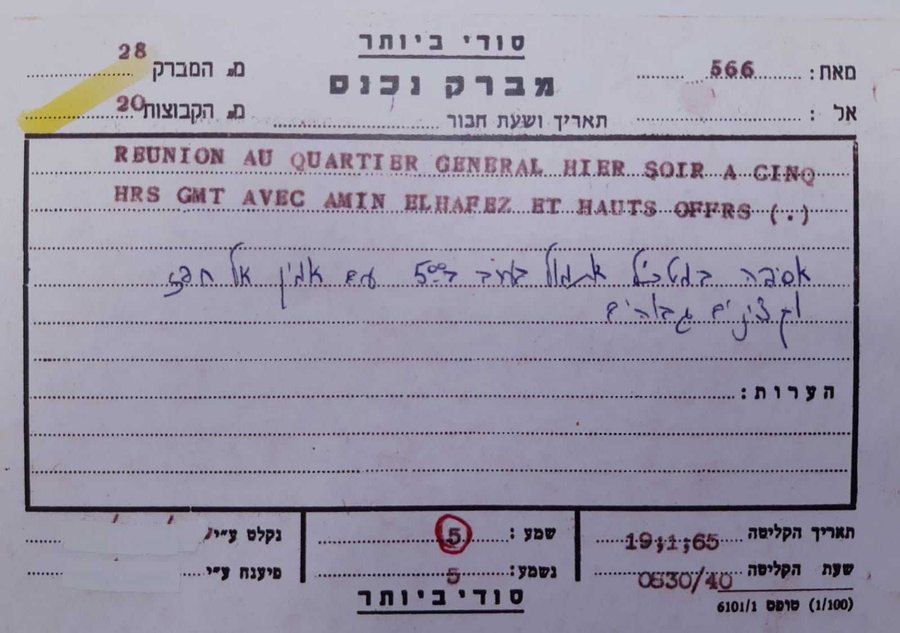 סודי ביותר
מברק נכנס
מאת: 566
אל:
תאריך ושעת חבור
מ. המברק 28
מ. הקבוצות 20
REUNION AU QUARTIER GENERAL HIER SOIR A CINQ
HRS GMT AVEC AMIN ELHAFEZ ET HAUTS OFFRS (.)
אסיפה במטכ"ל אתמול בערב ב-5⁰⁰ עם אמין אל חפז
וקצינים גבוהים
הערות:
תאריך הקליטה 19;1;65
שעת הקליטה 0830/40
6101/1 טופס (1/100)
שמע: 5
נשמע: 5
נקלט ע"י
פיענח ע"י
סודי ביותר